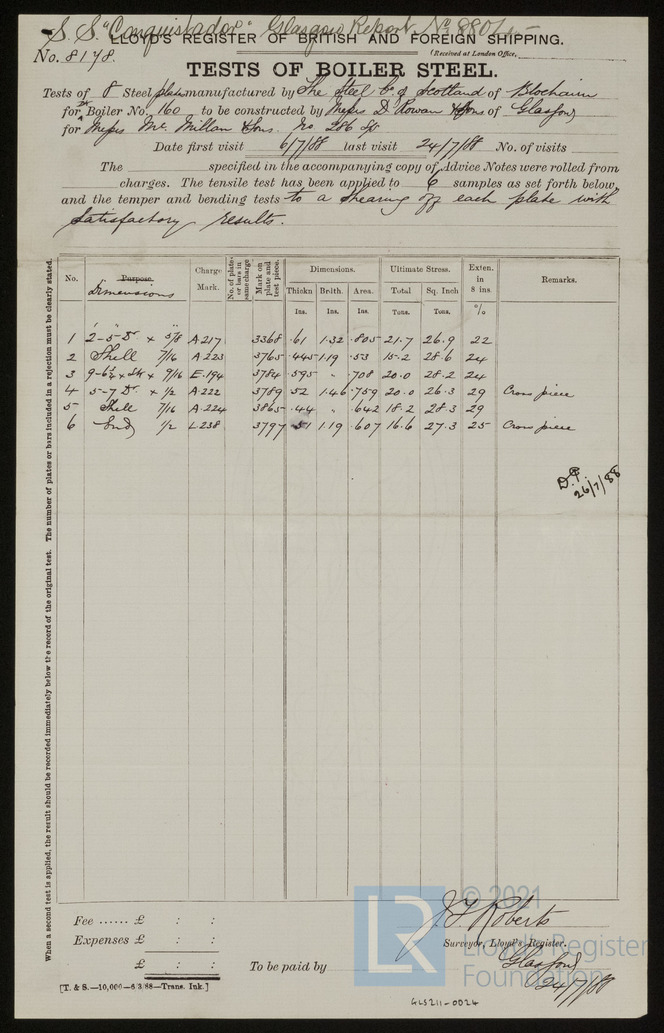 S. S. "Conquistador" Glasgow Report No 8801
LLOYD'S REGISTER OF BRITISH AND FOREIGN SHIPPING.
No. 8178.
(Received at London Office,
TESTS OF BOILER STEEL.
Tests of 8 Steel plates manufactured by The Steel Co. of Scotland of Blochairn
for Boiler No. 160 to be constructed by Messrs D. Rowan & Sons of Glasgow
for Messrs Mc Millan & Sons. No 286
Date first visit 6/7/88 last visit 24/7/88 No. of visits
The specified in the accompanying copy of Advice Notes were rolled from
charges. The tensile test has been applied to 6 samples as set forth below,
and the temper and bending tests to a shearing off each plate with
satisfactory results.
When a second test is applied, the result should be recorded immediately below the record of the original test. The number of plates or bars included in a rejection must be clearly stated.
No. Purpose. Dimensions Charge Mark. No. of plates or bars in same charge Mark on plate and test piece. Dimensions. Ultimate Stress. Exten. in 8 ins. Remarks.
Thickn Brdth. Area. Total Sq. Inch
Ins. Ins. Tons. Tons. %
1 2-5 Dr × 5/8 A.217 3368 .61 1.32 .805 21.7 26.9 22
2 Shell 7/16 A.223 3765 .445 1.19 .53 15.2 28.6 24
3 9/16 E.194 3784 .595 " .708 20.0 28.2 24
4 5-7 Dr. × 1/2 A.222 3789 .52 1.46 .759 20.0 26.3 29 Cross piece
5 Shell 7/16 A.224 3865 .44 " .642 18.2 28.3 29
6 Ends 1/2 L.238 3797 .51 1.19 .607 16.6 27.3 25 Cross piece
26/7/88
Fee ...... £ : :
Expenses £ : :
£ : :
To be paid by
J. F. Roberts
Surveyor, Lloyd's Register.
Glasgow
24/7/88
[T. & S.—10,000—6/3/88—Trans. Ink.]
GLS211-0024
LR
© 2021
Lloyd's Register
Foundation